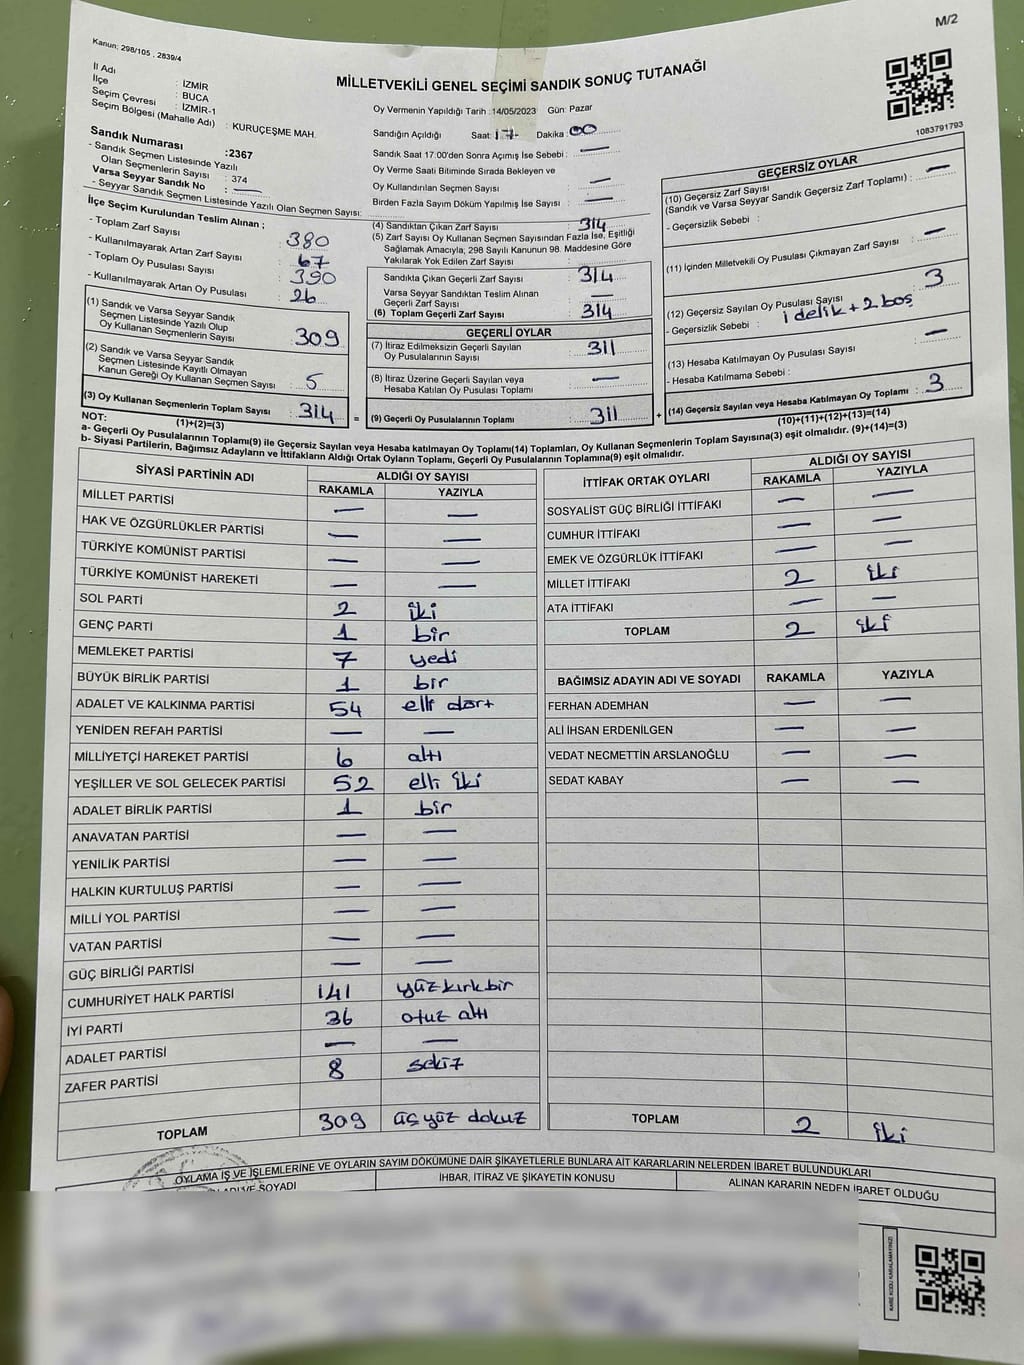 M/2
Kanun; 298/105 , 2839/4
MİLLETVEKİLİ GENEL SEÇİMİ SANDIK SONUÇ TUTANAĞI
İl Adı : İZMİR
İlçe : BUCA
Seçim Çevresi : İZMİR-1
Seçim Bölgesi (Mahalle Adı) : KURUÇEŞME MAH.
Sandık Numarası :2367
- Sandık Seçmen Listesinde Yazılı
Olan Seçmenlerin Sayısı : 374
Varsa Seyyar Sandık No : —
- Seyyar Sandık Seçmen Listesinde Yazılı Olan Seçmen Sayısı:
İlçe Seçim Kurulundan Teslim Alınan ;
- Toplam Zarf Sayısı : 380
- Kullanılmayarak Artan Zarf Sayısı : 67
- Toplam Oy Pusulası Sayısı : 390
- Kullanılmayarak Artan Oy Pusulası : 26
(1) Sandık ve Varsa Seyyar Sandık
Seçmen Listesinde Yazılı Olup
Oy Kullanan Seçmenlerin Sayısı : 309
(2) Sandık ve Varsa Seyyar Sandık
Seçmen Listesinde Kayıtlı Olmayan
Kanun Gereği Oy Kullanan Seçmen Sayısı : 5
(3) Oy Kullanan Seçmenlerin Toplam Sayısı : 314
(1)+(2)=(3)
Oy Vermenin Yapıldığı Tarih :14/05/2023 Gün: Pazar
Sandığın Açıldığı Saat: 17 Dakika: 00
Sandık Saat 17:00'den Sonra Açımış İse Sebebi : —
Oy Verme Saati Bitiminde Sırada Bekleyen ve
Oy Kullandırılan Seçmen Sayısı : —
Birden Fazla Sayım Döküm Yapılmış İse Sayısı : —
(4) Sandıktan Çıkan Zarf Sayısı : 314
(5) Zarf Sayısı Oy Kullanan Seçmen Sayısından Fazla İse, Eşitliği
Sağlamak Amacıyla, 298 Sayılı Kanunun 98. Maddesine Göre
Yakılarak Yok Edilen Zarf Sayısı :
Sandıkta Çıkan Geçerli Zarf Sayısı : 314
Varsa Seyyar Sandıktan Teslim Alınan
Geçerli Zarf Sayısı : —
(6) Toplam Geçerli Zarf Sayısı : 314
GEÇERLİ OYLAR
(7) İtiraz Edilmeksizin Geçerli Sayılan
Oy Pusulalarının Sayısı : 311
(8) İtiraz Üzerine Geçerli Sayılan veya
Hesaba Katılan Oy Pusulası Toplamı : —
= (9) Geçerli Oy Pusulalarının Toplamı : 311 +
1083791793
GEÇERSİZ OYLAR
(10) Geçersiz Zarf Sayısı
(Sandık ve Varsa Seyyar Sandık Geçersiz Zarf Toplamı) : —
- Geçersizlik Sebebi :
(11) İçinden Milletvekili Oy Pusulası Çıkmayan Zarf Sayısı : —
(12) Geçersiz Sayılan Oy Pusulası Sayısı : 3
- Geçersizlik Sebebi : 1 delik + 2 boş
(13) Hesaba Katılmayan Oy Pusulası Sayısı : —
- Hesaba Katılmama Sebebi :
(14) Geçersiz Sayılan veya Hesaba Katılmayan Oy Toplamı : 3
(10)+(11)+(12)+(13)=(14)
NOT:
a- Geçerli Oy Pusulalarının Toplamı(9) ile Geçersiz Sayılan veya Hesaba katılmayan Oy Toplamı(14) Toplamları, Oy Kullanan Seçmenlerin Toplam Sayısına(3) eşit olmalıdır. (9)+(14)=(3)
b- Siyasi Partilerin, Bağımsız Adayların ve İttifakların Aldığı Ortak Oyların Toplamı, Geçerli Oy Pusulalarının Toplamına(9) eşit olmalıdır.
SİYASİ PARTİNİN ADI ALDIĞI OY SAYISI
RAKAMLA YAZIYLA
MİLLET PARTİSİ — —
HAK VE ÖZGÜRLÜKLER PARTİSİ — —
TÜRKİYE KOMÜNİST PARTİSİ — —
TÜRKİYE KOMÜNİST HAREKETİ — —
SOL PARTİ 2 iki
GENÇ PARTİ 1 bir
MEMLEKET PARTİSİ 7 yedi
BÜYÜK BİRLİK PARTİSİ 1 bir
ADALET VE KALKINMA PARTİSİ 54 elli dört
YENİDEN REFAH PARTİSİ — —
MİLLİYETÇİ HAREKET PARTİSİ 6 altı
YEŞİLLER VE SOL GELECEK PARTİSİ 52 elli iki
ADALET BİRLİK PARTİSİ 1 bir
ANAVATAN PARTİSİ — —
YENİLİK PARTİSİ — —
HALKIN KURTULUŞ PARTİSİ — —
MİLLİ YOL PARTİSİ — —
VATAN PARTİSİ — —
GÜÇ BİRLİĞİ PARTİSİ — —
CUMHURİYET HALK PARTİSİ 141 yüz kırk bir
İYİ PARTİ 36 otuz altı
ADALET PARTİSİ — —
ZAFER PARTİSİ 8 sekiz
TOPLAM 309 üç yüz dokuz
İTTİFAK ORTAK OYLARI ALDIĞI OY SAYISI
RAKAMLA YAZIYLA
SOSYALİST GÜÇ BİRLİĞİ İTTİFAKI — —
CUMHUR İTTİFAKI — —
EMEK VE ÖZGÜRLÜK İTTİFAKI — —
MİLLET İTTİFAKI 2 iki
ATA İTTİFAKI — —
TOPLAM 2 iki
BAĞIMSIZ ADAYIN ADI VE SOYADI RAKAMLA YAZIYLA
FERHAN ADEMHAN — —
ALİ İHSAN ERDENİLGEN — —
VEDAT NECMETTİN ARSLANOĞLU — —
SEDAT KABAY — —
TOPLAM 2 iki
OYLAMA İŞ VE İŞLEMLERİNE VE OYLARIN SAYIM DÖKÜMÜNE DAİR ŞİKAYETLERLE BUNLARA AİT KARARLARIN NELERDEN İBARET BULUNDUKLARI
ADI VE SOYADI İHBAR, İTİRAZ VE ŞİKAYETİN KONUSU ALINAN KARARIN NEDEN İBARET OLDUĞU
KARE KODU KARALAMAYINIZ!